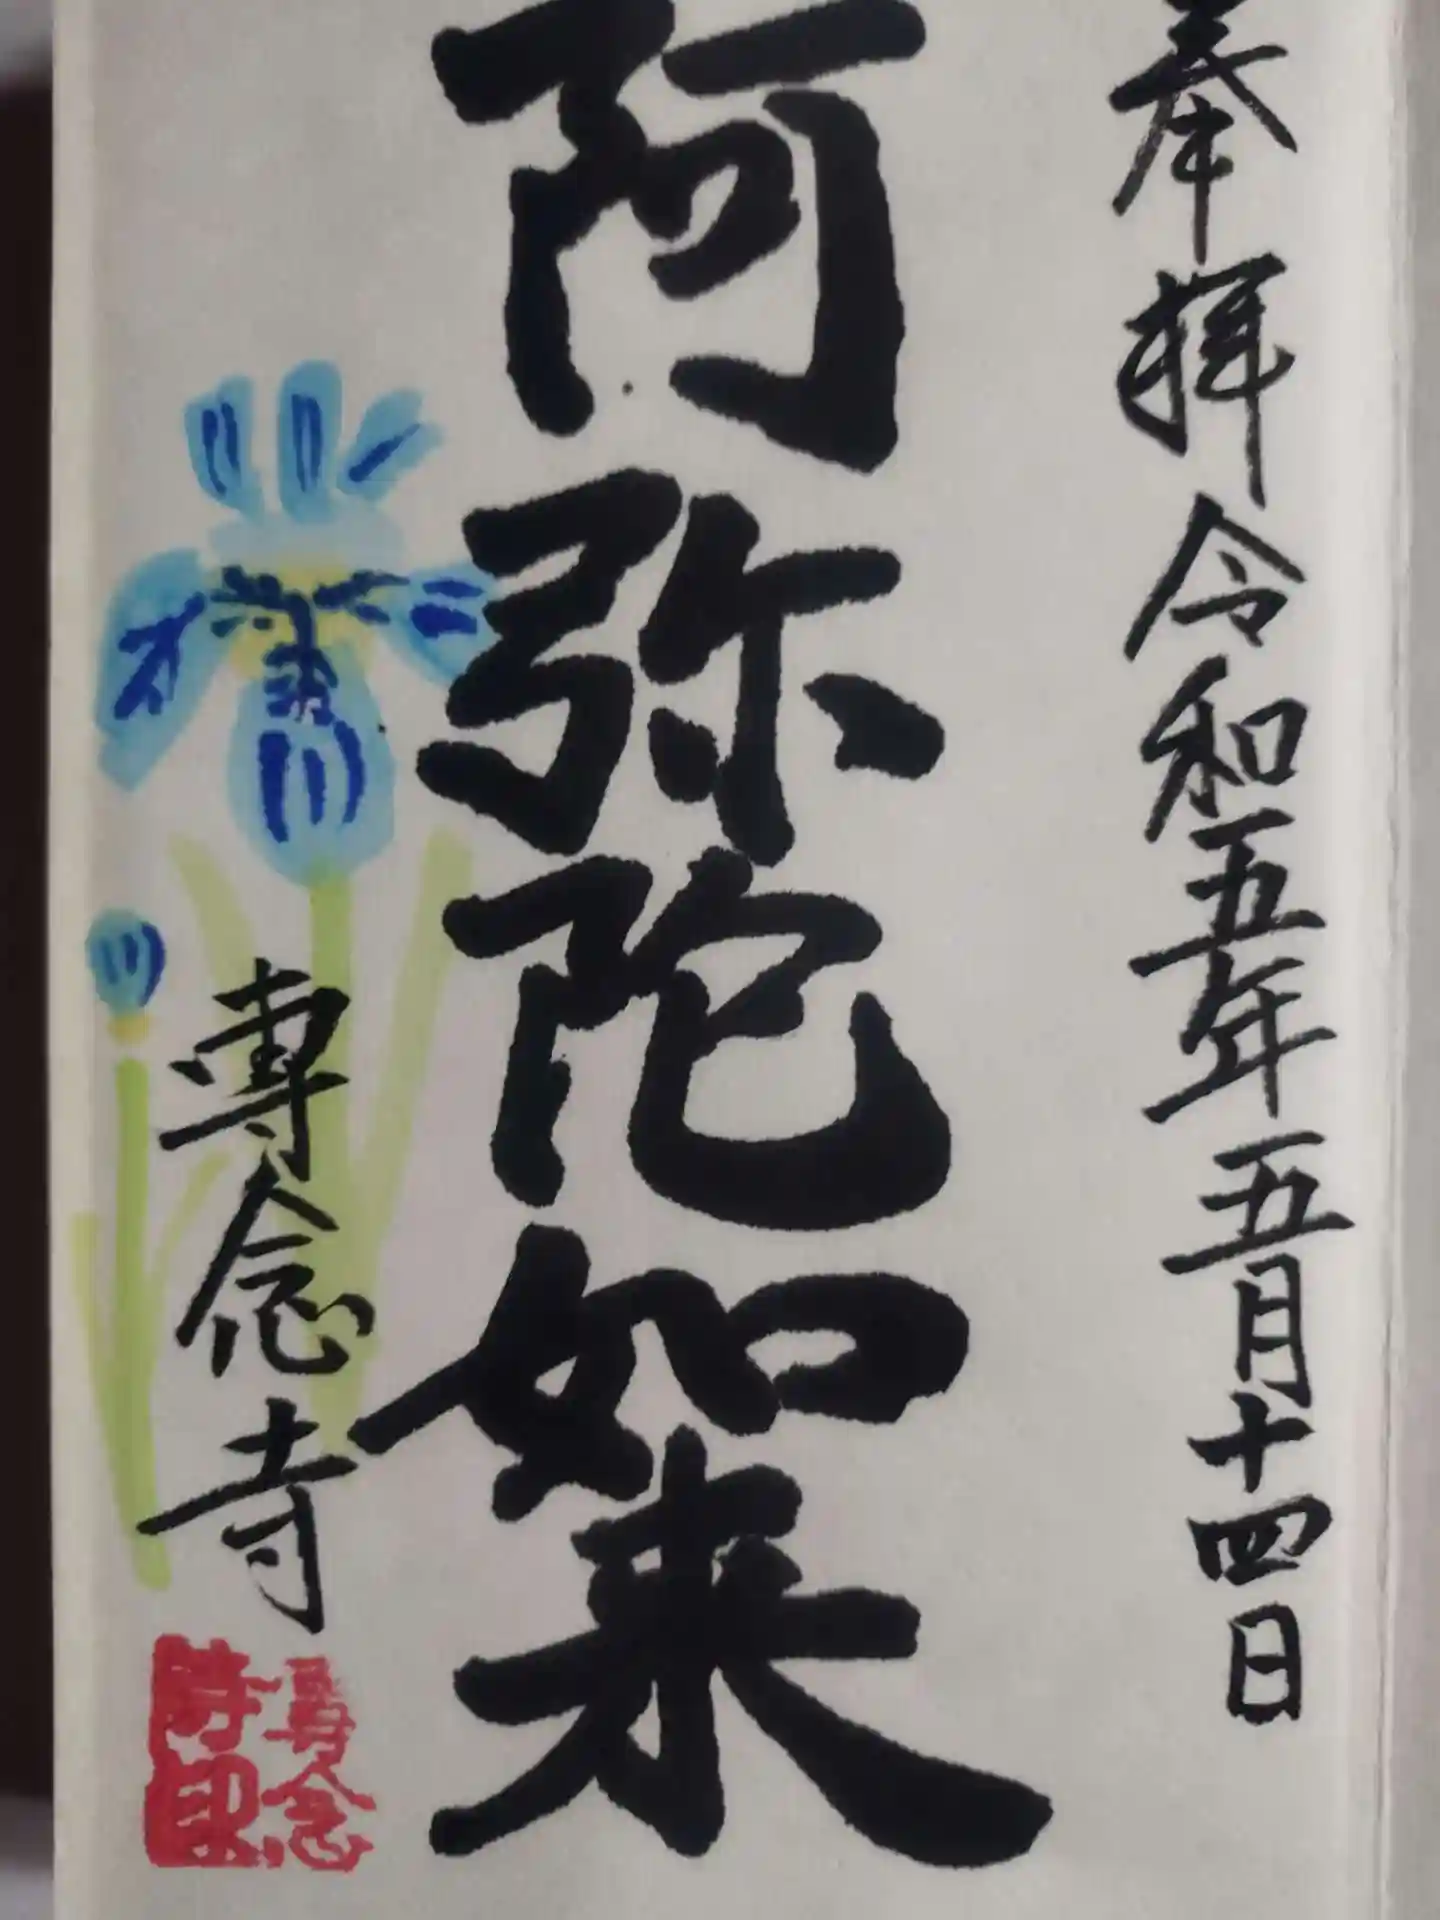 奉拝 令和五年五月十四日
阿弥陀如来
専念寺
専念
寺印